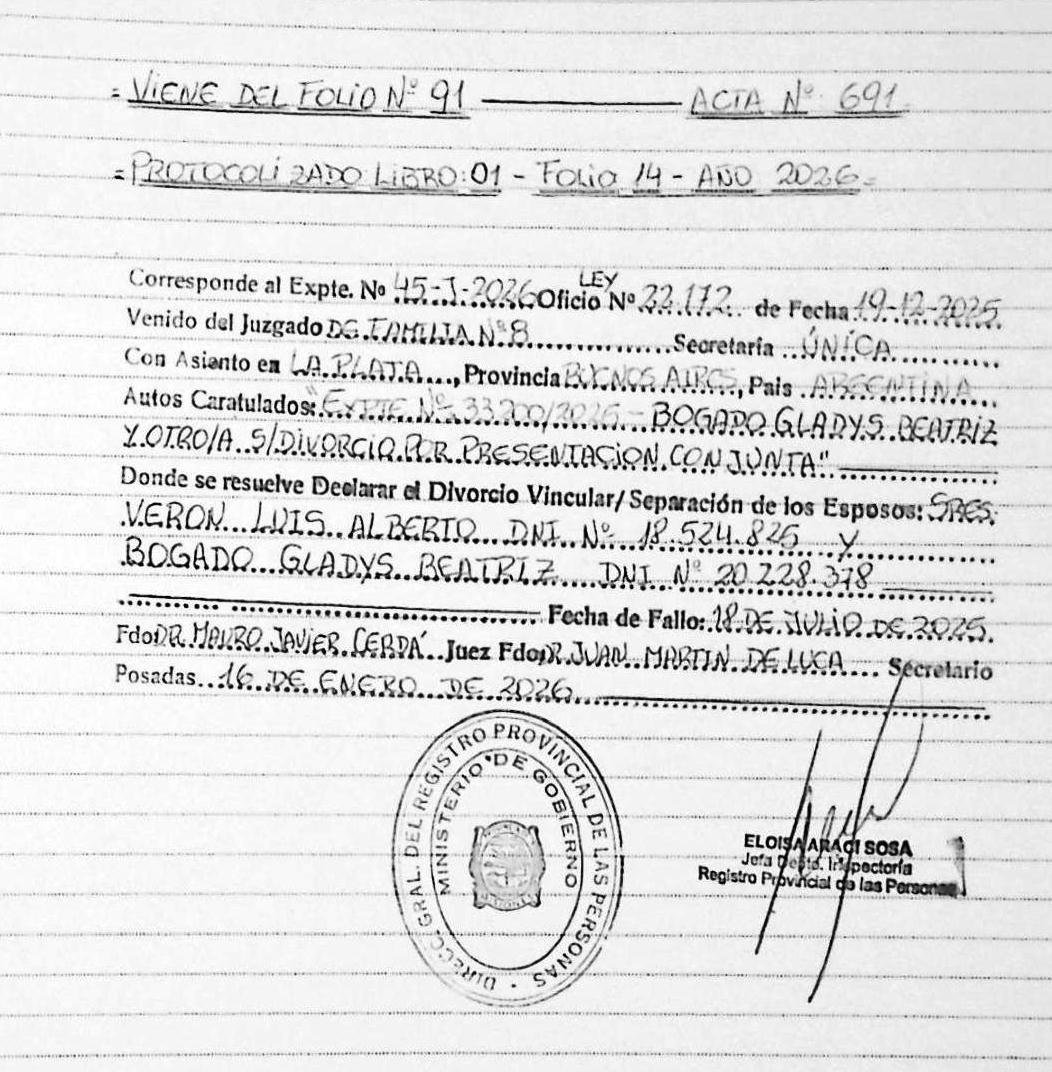 = VIENE DEL FOLIO Nº 91 ——— ACTA Nº 691
= PROTOCOLIZADO LIBRO: 01 - FOLIO 14 - AÑO 2026 =
Corresponde al Expte. Nº 45-J-2026 Oficio LEY Nº 22.172 de Fecha 19-12-2025
Venido del Juzgado DE FAMILIA Nº 8 Secretaría ÚNICA
Con Asiento en LA PLATA, Provincia BUENOS AIRES, Pais ARGENTINA
Autos Caratulados: "EXPTE Nº 33200/2025 - BOGADO GLADYS BEATRIZ
Y OTRO/A S/DIVORCIO POR PRESENTACION CONJUNTA".
Donde se resuelve Declarar el Divorcio Vincular/Separación de los Esposos: SRES.
VERON LUIS ALBERTO DNI Nº 18.524.825 Y
BOGADO GLADYS BEATRIZ DNI Nº 20.228.378
Fecha de Fallo: 18 DE JULIO DE 2025.
Fdo: DR. MAURO JAVIER CERDÁ Juez Fdo: DR. JUAN MARTIN DE LUCA Secretario
Posadas 16 DE ENERO DE 2026
DIRECC. GRAL. DEL REGISTRO PROVINCIAL DE LAS PERSONAS
MINISTERIO DE GOBIERNO
MISIONES
ELOISA ARACI SOSA
Jefa Depto. Inspectoría
Registro Provincial de las Personas